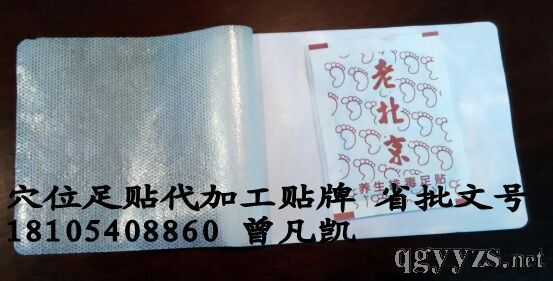 老北京
养生排毒足贴
穴位足贴代加工贴牌 省批文号
18105408860 曾凡凯
qgyyzs.net